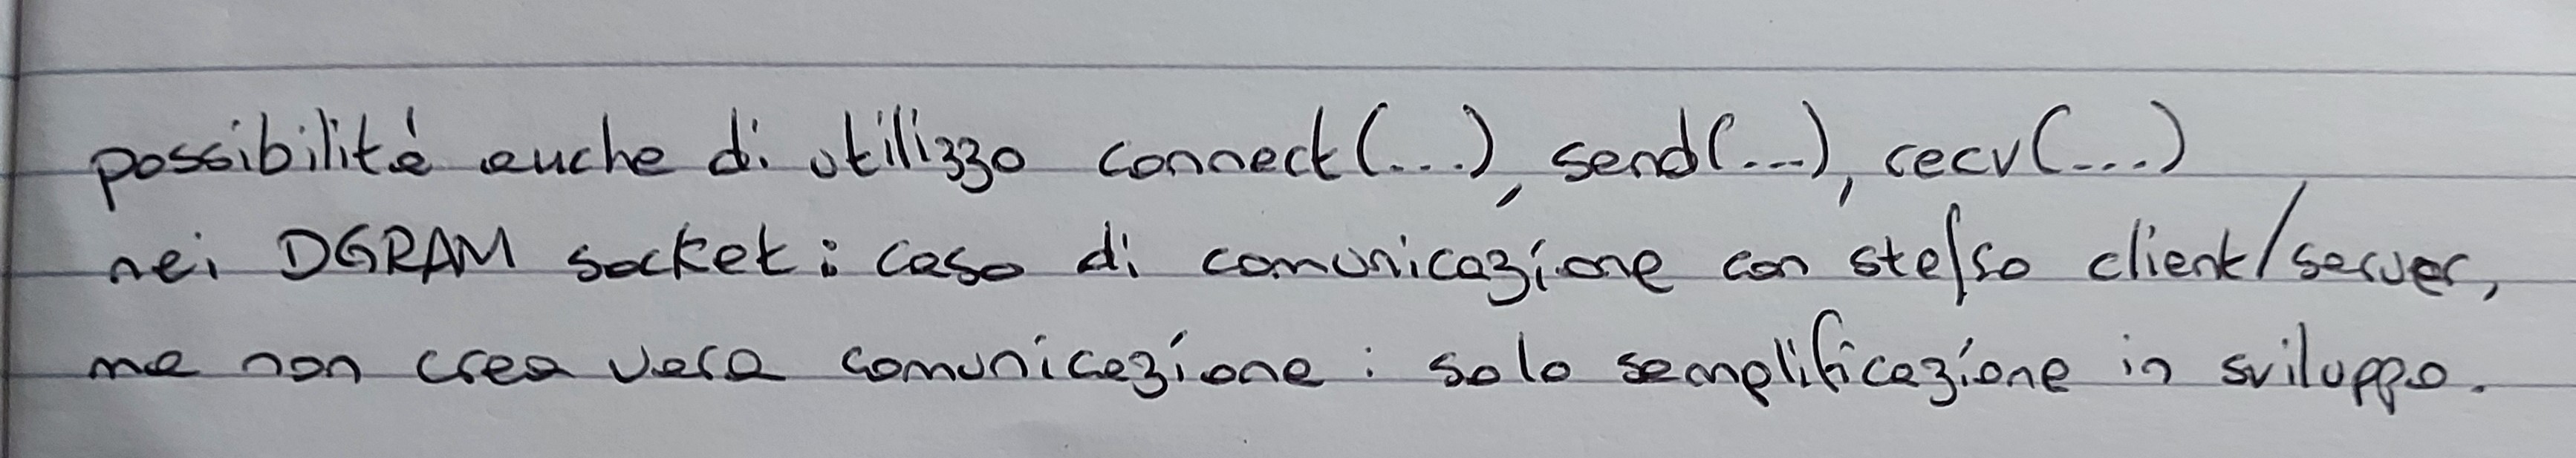 possibilità anche di utilizzo connect(...), send(...), recv(...)
nei DGRAM socket: caso di comunicazione con stesso client/server,
ma non crea vera comunicazione: solo semplificazione in sviluppo.